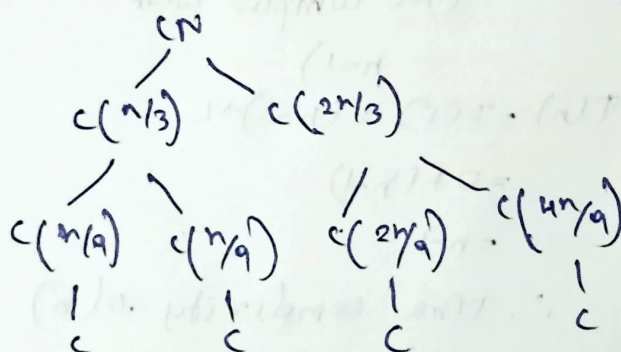 CN
C(n/3) C(2n/3)
C(n/9) C(n/9) C(2n/9) C(4n/9)
C C C C